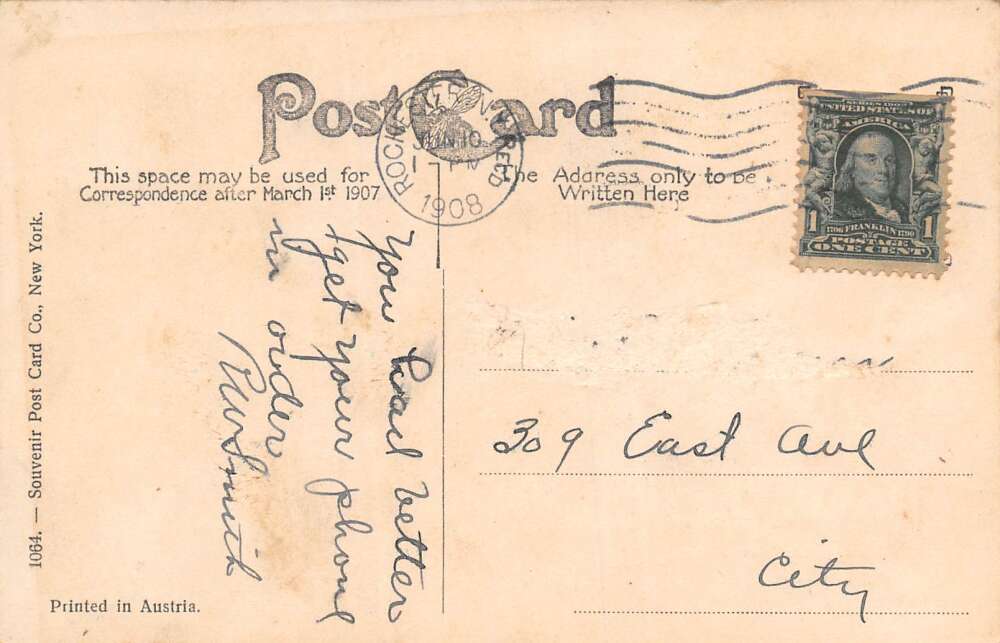 Post Card
This space may be used for
Correspondence after March 1st 1907
The Address only to be
Written Here
ROCHESTER, N.Y. REC'D
JUN 10
1908
SERIES 1902
UNITED STATES OF
AMERICA
1 1
1706 FRANKLIN 1790
POSTAGE
ONE CENT
You had better
get your phone
in order
RWSmith
309 East Ave
City
1064. — Souvenir Post Card Co., New York.
Printed in Austria.